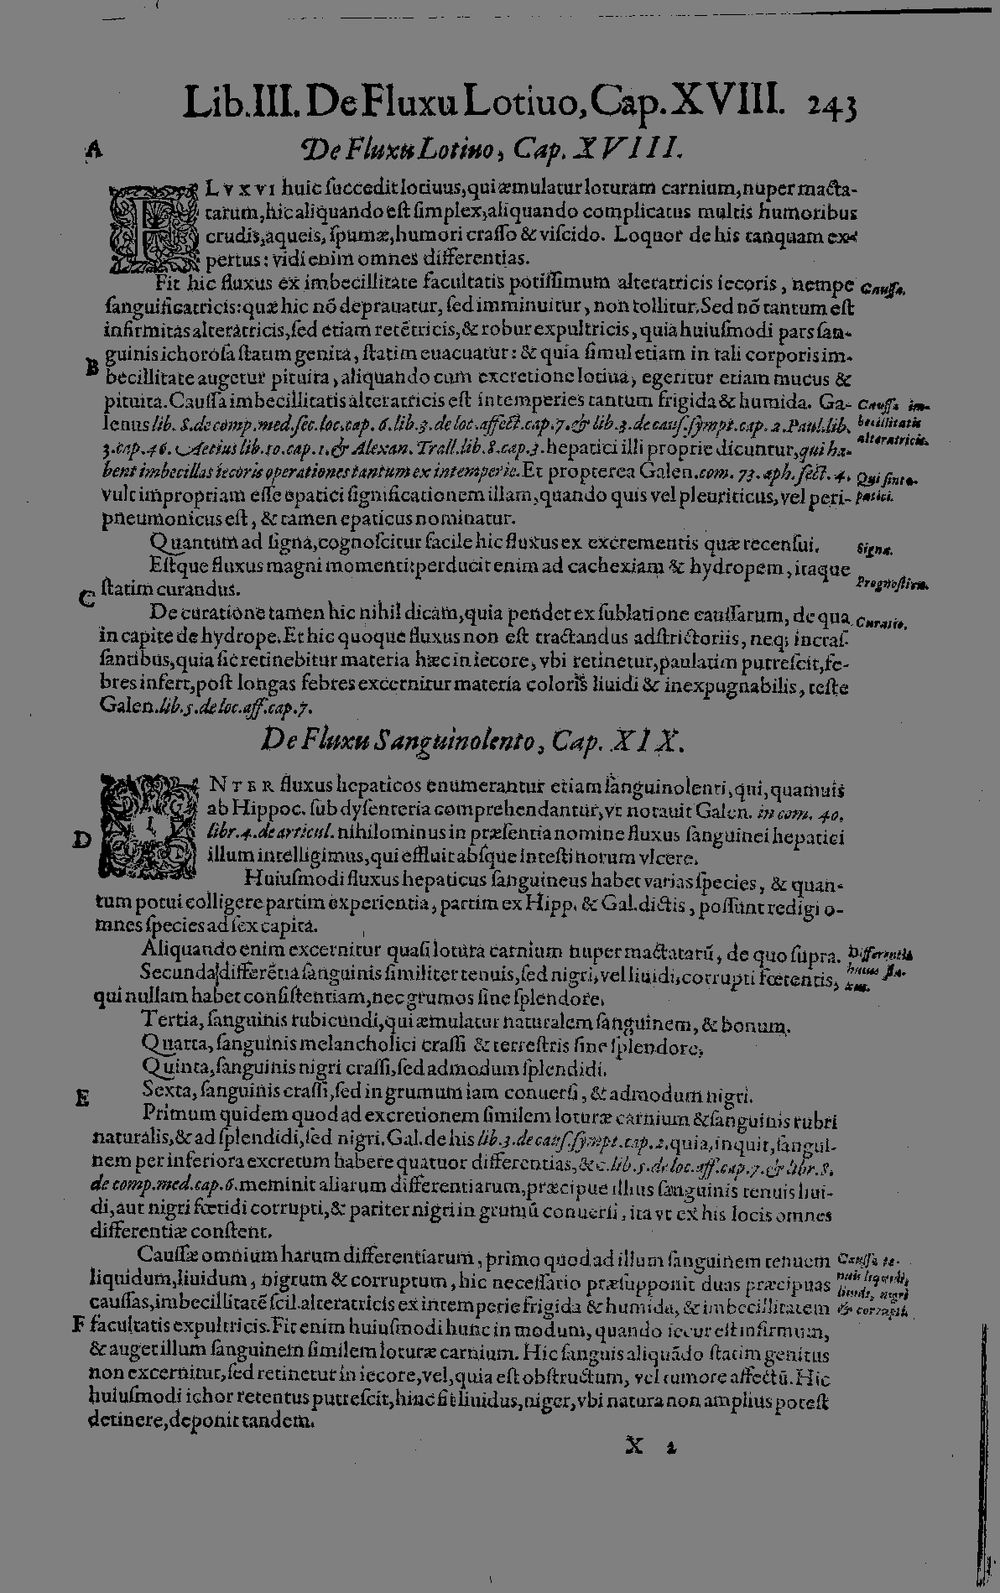 Lib.III. De Fluxu Lotiuo, Cap. XVIII. 243
De Fluxu Lotiuo, Cap. XVIII.
A
FLVXVI huic ſuccedit lotiuus, qui æmulatur loturam carnium, nuper macta-
tarum, hic aliquando eſt ſimplex, aliquando complicatus multis humoribus
crudis, aqueis, ſpumæ, humori craſſo & viſcido. Loquor de his tanquam ex-
pertus: vidi enim omnes differentias.
Fit hic fluxus ex imbecillitate facultatis potiſſimum alteratricis iecoris, nempe
Cauſſa.
ſanguificatricis: quæ hic nō deprauatur, ſed imminuitur, non tollitur. Sed nō tantum eſt
infirmitas alteratricis, ſed etiam retētricis, & robur expultricis, quia huiuſmodi pars ſan-
guinis ichoroſa ſtatim genita, ſtatim euacuatur: & quia ſimul etiam in tali corporis im-
B
becillitate augetur pituita, aliquando cum excretione lotiua, egeritur etiam mucus &
pituita. Cauſſa imbecillitatis alteratricis eſt intemperies tantum frigida & humida. Ga-
Cauſſa im-
lenus lib. 8. de comp. med. ſec. loc. cap. 6. lib. 3. de loc. affect. cap. 7. & lib. 3. de cauſ. ſympt. cap. 2. Paul. lib.
becillitatis
alteratricis.
3. cap. 46. Aetius lib. 10. cap. 1. & Alexan. Trall. lib. 8. cap. 3. hepatici illi proprie dicuntur, qui ha-
bent imbecillas iecoris operationes tantum ex intemperie. Et propterea Galen. com. 73. aph. ſect. 4.
Qui ſint e-
patici.
vult impropriam eſſe epatici ſignificationem illam, quando quis vel pleuriticus, vel peri-
pneumonicus eſt, & tamen epaticus nominatur.
Quantum ad ſigna, cognoſcitur facile hic fluxus ex excrementis quæ recenſui.
Signa.
Eſtque fluxus magni momenti: perducit enim ad cachexiam & hydropem, itaque
Prognoſtica.
C
ſtatim curandus.
De curatione tamen hic nihil dicam, quia pendet ex ſublatione cauſſarum, de qua
Curatio.
in capite de hydrope. Et hic quoque fluxus non eſt tractandus adſtrictoriis, neq; incraſ-
ſantibus, quia ſic retinebitur materia hæc in iecore, vbi retinetur, paulatim putreſcit, fe-
bres infert, poſt longas febres excernitur materia coloris liuidi & inexpugnabilis, teſte
Galen. lib. 5. de loc. aff. cap. 7.
De Fluxu Sanguinolento, Cap. XIX.
INTER fluxus hepaticos enumerantur etiam ſanguinolenti, qui, quamuis
ab Hippoc. ſub dyſenteria comprehendantur, vt notauit Galen. in com. 40.
D
libr. 4. de articul. nihilominus in præſentia nomine fluxus ſanguinei hepatici
illum intelligimus, qui effluit abſque inteſtinorum vlcere.
Huiuſmodi fluxus hepaticus ſanguineus habet varias ſpecies, & quan-
tum potui colligere partim experientia, partim ex Hipp. & Gal. dictis, poſſunt redigi o-
mnes ſpecies ad ſex capita.
Aliquando enim excernitur quaſi lotura carnium nuper mactatarū, de quo ſupra.
Differentia
Secunda differētia ſanguinis ſimiliter tenuis, ſed nigri, vel liuidi, corrupti fœtentis,
huius flu-
xus.
qui nullam habet conſiſtentiam, nec grumos ſine ſplendore.
Tertia, ſanguinis rubicundi, qui æmulatur naturalem ſanguinem, & bonum.
Quarta, ſanguinis melancholici craſſi & terreſtris ſine ſplendore.
Quinta, ſanguinis nigri craſſi, ſed admodum ſplendidi.
E
Sexta, ſanguinis craſſi, ſed in grumum iam conuerſi, & admodum nigri.
Primum quidem quod ad excretionem ſimilem loturæ carnium & ſanguinis rubri
naturalis, & ad ſplendidi, ſed nigri. Gal. de his lib. 3. de cauſ. ſympt. cap. 2. quia, inquit, ſangui-
nem per inferiora excretum habere quatuor differentias, &c. lib. 5. de loc. aff. cap. 7. & libr. 8.
de comp. med. cap. 6. meminit aliarum differentiarum, præcipue illius ſanguinis tenuis liui-
di, aut nigri fœtidi corrupti, & pariter nigri in grumū conuerſi, ita vt ex his locis omnes
differentiæ conſtent.
Cauſſæ omnium harum differentiarum, primo quod ad illum ſanguinem tenuem
Cauſſa te-
nuis liquidi,
liuidi, nigri
& corrupti.
liquidum, liuidum, nigrum & corruptum, hic neceſſario præſupponit duas præcipuas
cauſſas, imbecillitatē ſcil. alteratricis ex intemperie frigida & humida, & imbecillitatem
F
facultatis expultricis. Fit enim huiuſmodi hunc in modum, quando iecur eſt infirmum,
& auget illum ſanguinem ſimilem loturæ carnium. Hic ſanguis aliquādo ſtatim genitus
non excernitur, ſed retinetur in iecore, vel, quia eſt obſtructum, vel tumore affectū. Hic
huiuſmodi ichor retentus putreſcit, hinc fit liuidus, niger, vbi natura non amplius poteſt
detinere, deponit tandem.
X 2